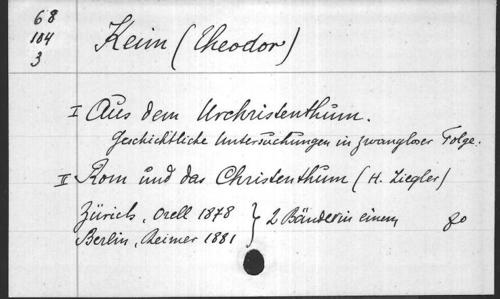 68
104
3
Keim (Theodor)
I Aus dem Urchristenthum.
Geschichtliche Untersuchungen in zwangloser Folge.
II Rom und das Christenthum (H. Ziegler)
Zürich, Orell 1878 } 2 Bände in einem 8o
Berlin, Reimer 1881